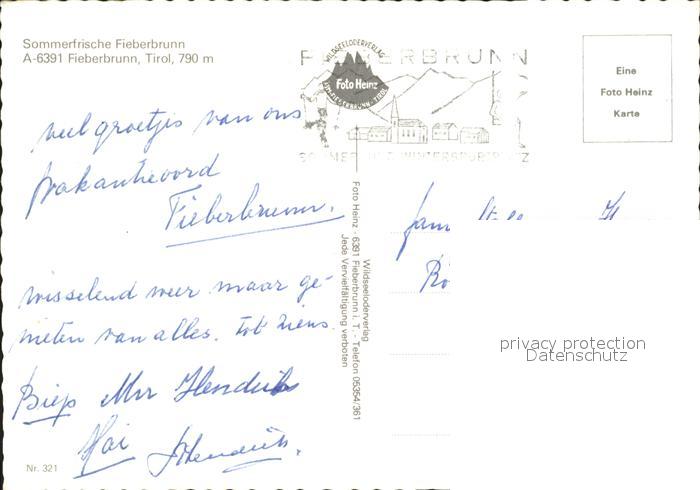 Sommerfrische Fieberbrunn
A-6391 Fieberbrunn, Tirol, 790 m
FIEBERBRUNN
WILDSEELODERVERLAG
Foto Heinz
SOMMER UND WINTERSPORTPLATZ
Eine
Foto Heinz
Karte
veel groetjes van ons
vakantieoord
Fieberbrunn.
wisselend weer maar ge-
nieten van alles. tot ziens.
Hendriks
Hendriks.
Wildseeloderverlag
Foto Heinz - 6391 Fieberbrunn i. T. - Telefon 05354/361
Jede Vervielfältigung verboten
fam
privacy protection
Datenschutz
Nr. 321